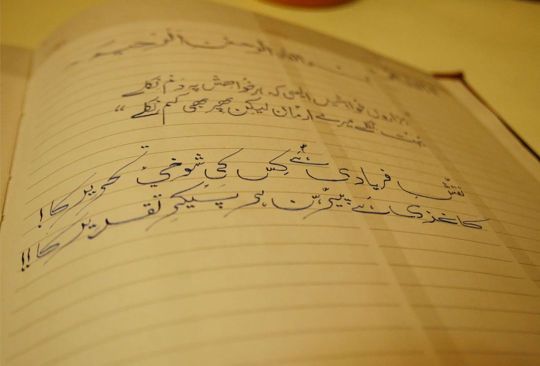 بسم الله الرحمن الرحيم
ہزاروں خواہشیں ایسی کہ ہر خواہش پہ دم نکلے
بہت نکلے میرے ارمان لیکن پھر بھی کم نکلے"
نقش فریادی ہے کِس کی شوخیِ تحریر کا!
کاغذی ہے پیرہن ہر پیکرِ تقدیر کا!!